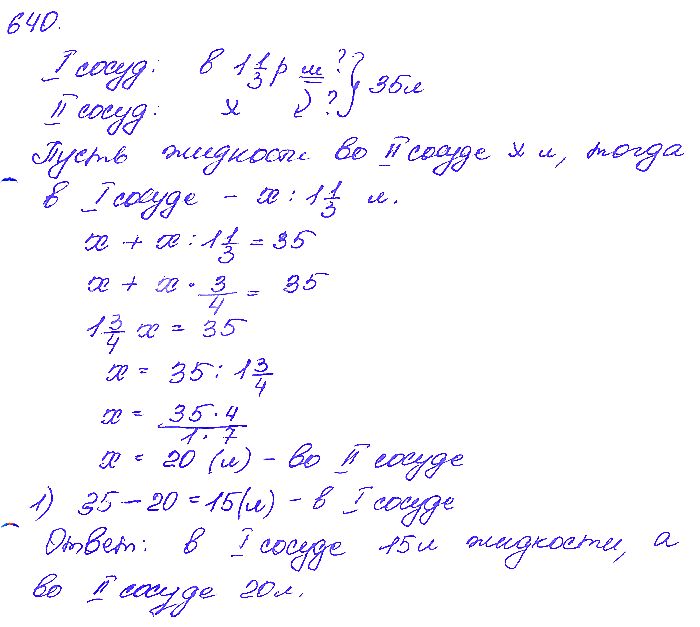 640.
I сосуд: в 1 1/3 р м ? } 35 л
II сосуд: x ?
Пусть жидкости во II сосуде x л, тогда
в I сосуде - x : 1 1/3 л.
x + x : 1 1/3 = 35
x + x · 3/4 = 35
1 3/4 x = 35
x = 35 : 1 3/4
x = 35 · 4 / 1 · 7
x = 20 (л) - во II сосуде
1) 35 - 20 = 15 (л) - в I сосуде
Ответ: в I сосуде 15 л жидкости, а
во II сосуде 20 л.